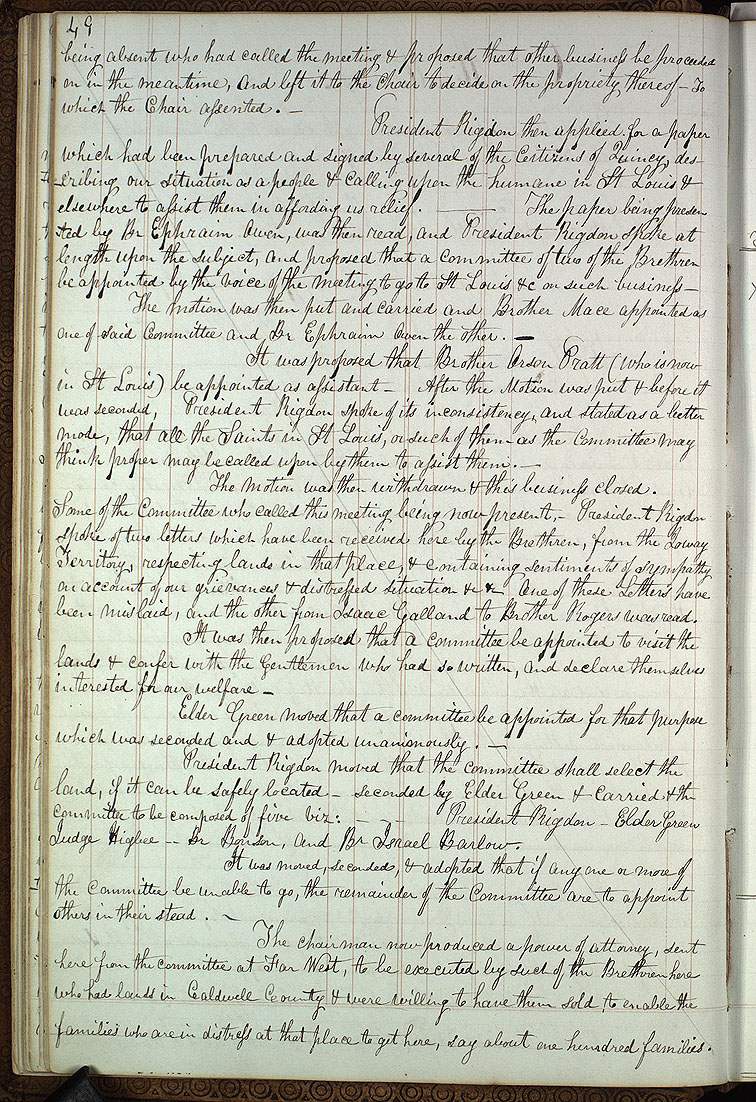 49
being absent who had called the meeting & proposed that other business be proceeded
on in the meantime, and left it to the Chair to decide on the propriety thereof – To
which the Chair assented. –
President Rigdon then applied for a paper
which had been prepared and signed by several of the Citizens of Quincy, des-
cribing our situation as a people & calling upon the humane in St Louis &
elsewhere to assist them in affording us relief. —— The paper being presen
ted by Br Ephraim Owen, was then read, and President Rigdon spoke at
length upon the subject, and proposed that a committee of two of the Brethren
be appointed by the voice of the meeting to go to St Louis &c on such business –
The motion was then put and carried and Brother Mace appointed as
one of said Committee and Br Ephraim Owen the other. –
It was proposed that Brother Orson Pratt (who is now
in St Louis) be appointed as assistant – After the Motion was put & before it
was seconded, President Rigdon spoke of its inconsistency, and stated as a better
mode, that all the Saints in St Louis, or such of them as the Committee may
think proper may be called upon by them to assist them. –
The motion was then withdrawn & this business closed.
Some of the Committee who called this meeting being now present, – President Rigdon
spoke of two letters which have been received here by the Brethren, from the Ioway
Territory, respecting lands in that place, & containing sentiments of sympathy
on account of our grievances & distressed situation &c &c One of these Letters have
been mislaid, and the other from Isaac Galland to Brother Rogers was read.
It was then proposed that a committee be appointed to visit the
lands & confer with the Gentlemen who had so written, and declare themselves
interested for our welfare –
Elder Green moved that a committee be appointed for that purpose
which was seconded and & adopted unanimously. –
President Rigdon moved that the committee shall select the
land, if it can be safely located – seconded by Elder Green & Carried & the
Committee to be composed of five viz: – – President Rigdon – Elder Green
Judge Higbee – Br Benson, and Br Israel Barlow.
It was moved, seconded, & adopted that if any one or more of
the Committee be unable to go, the remainder of the Committee are to appoint
others in their stead. –
The chairman now produced a power of attorney, sent
here from the committee at Far West, to be executed by such of the Brethren here
who had lands in Caldwell County & were willing to have them sold, to enable the
families who are in distress at that place to get here, say about one hundred families.